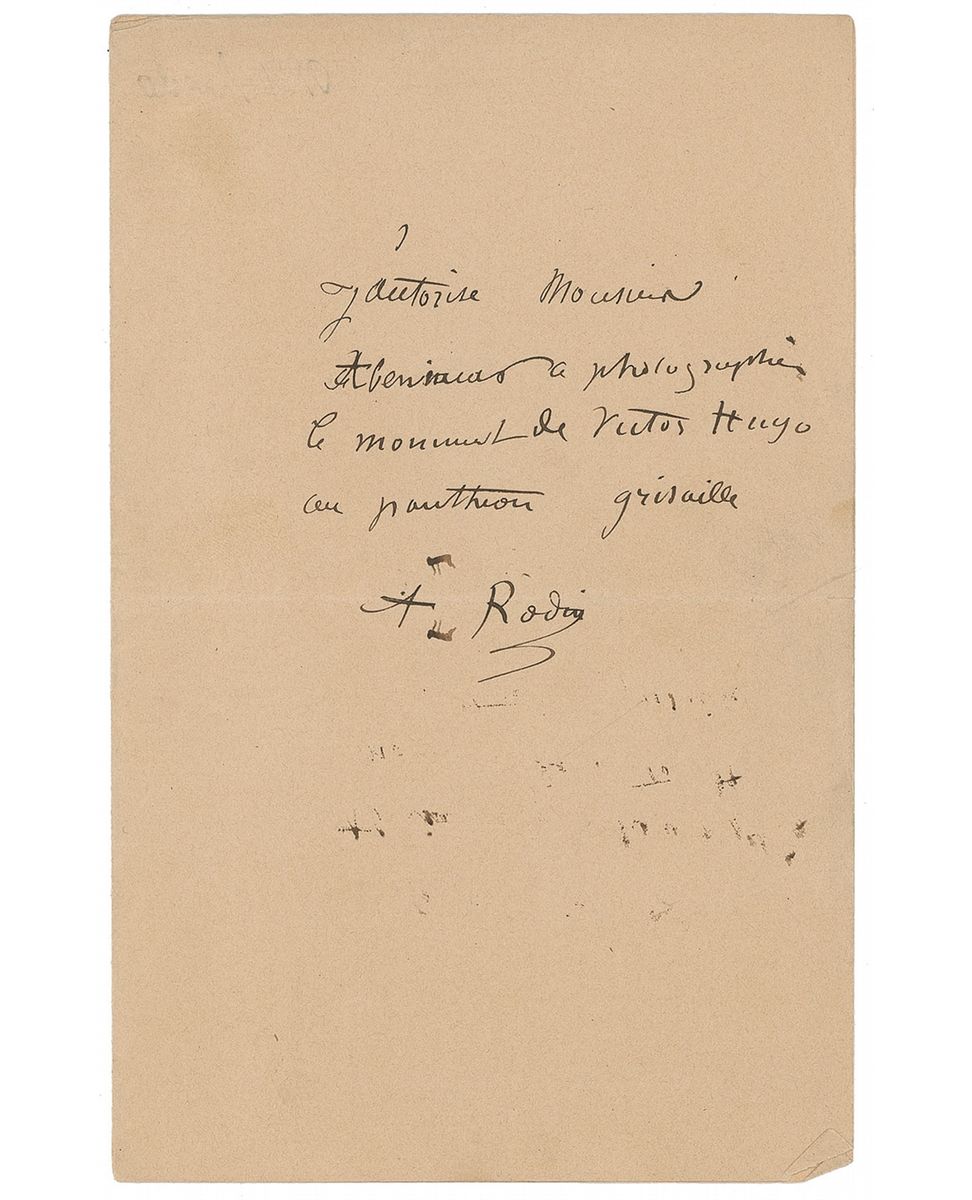 J'autorise Monsieur
a photographier
le monument de Victor Hugo
au pantheon grisaille
A Rodin